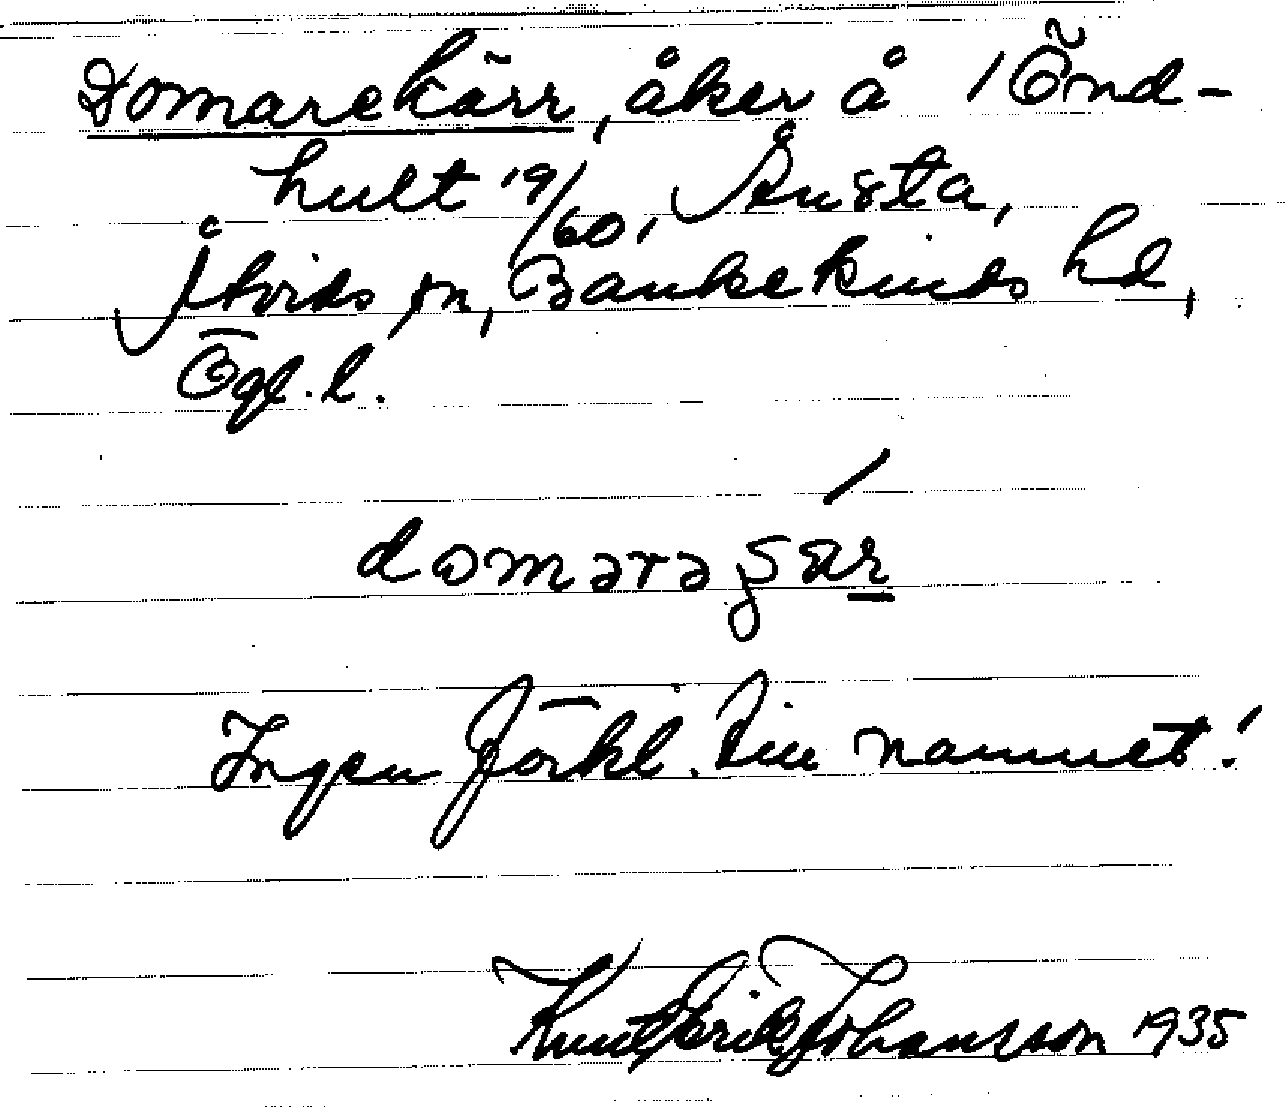 Domarekärr, åker å 1 Önd-
hult 19/60, Ånsta,
Åtvids sn, Bankekinds hd,
Ögl. l.
Ingen förkl. till namnet!
Knut Erik Johansson 1935